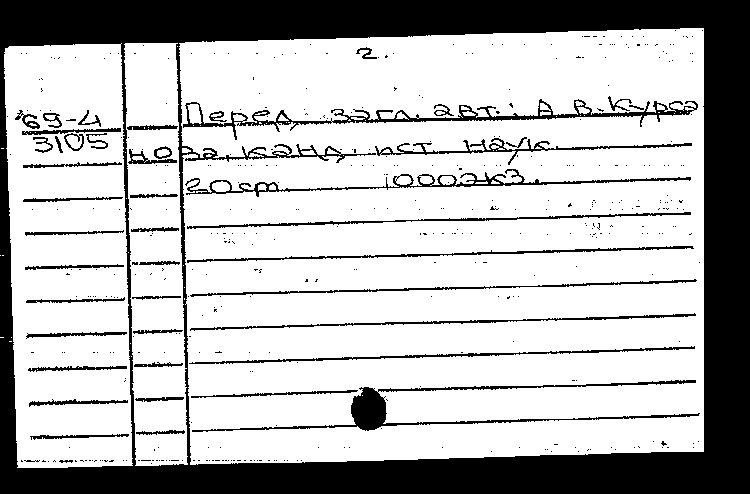 2.
69-4
3105
Перед загл. авт.: А В. Курса
нова, канд. ист. наук.
20 см. 1000 экз.